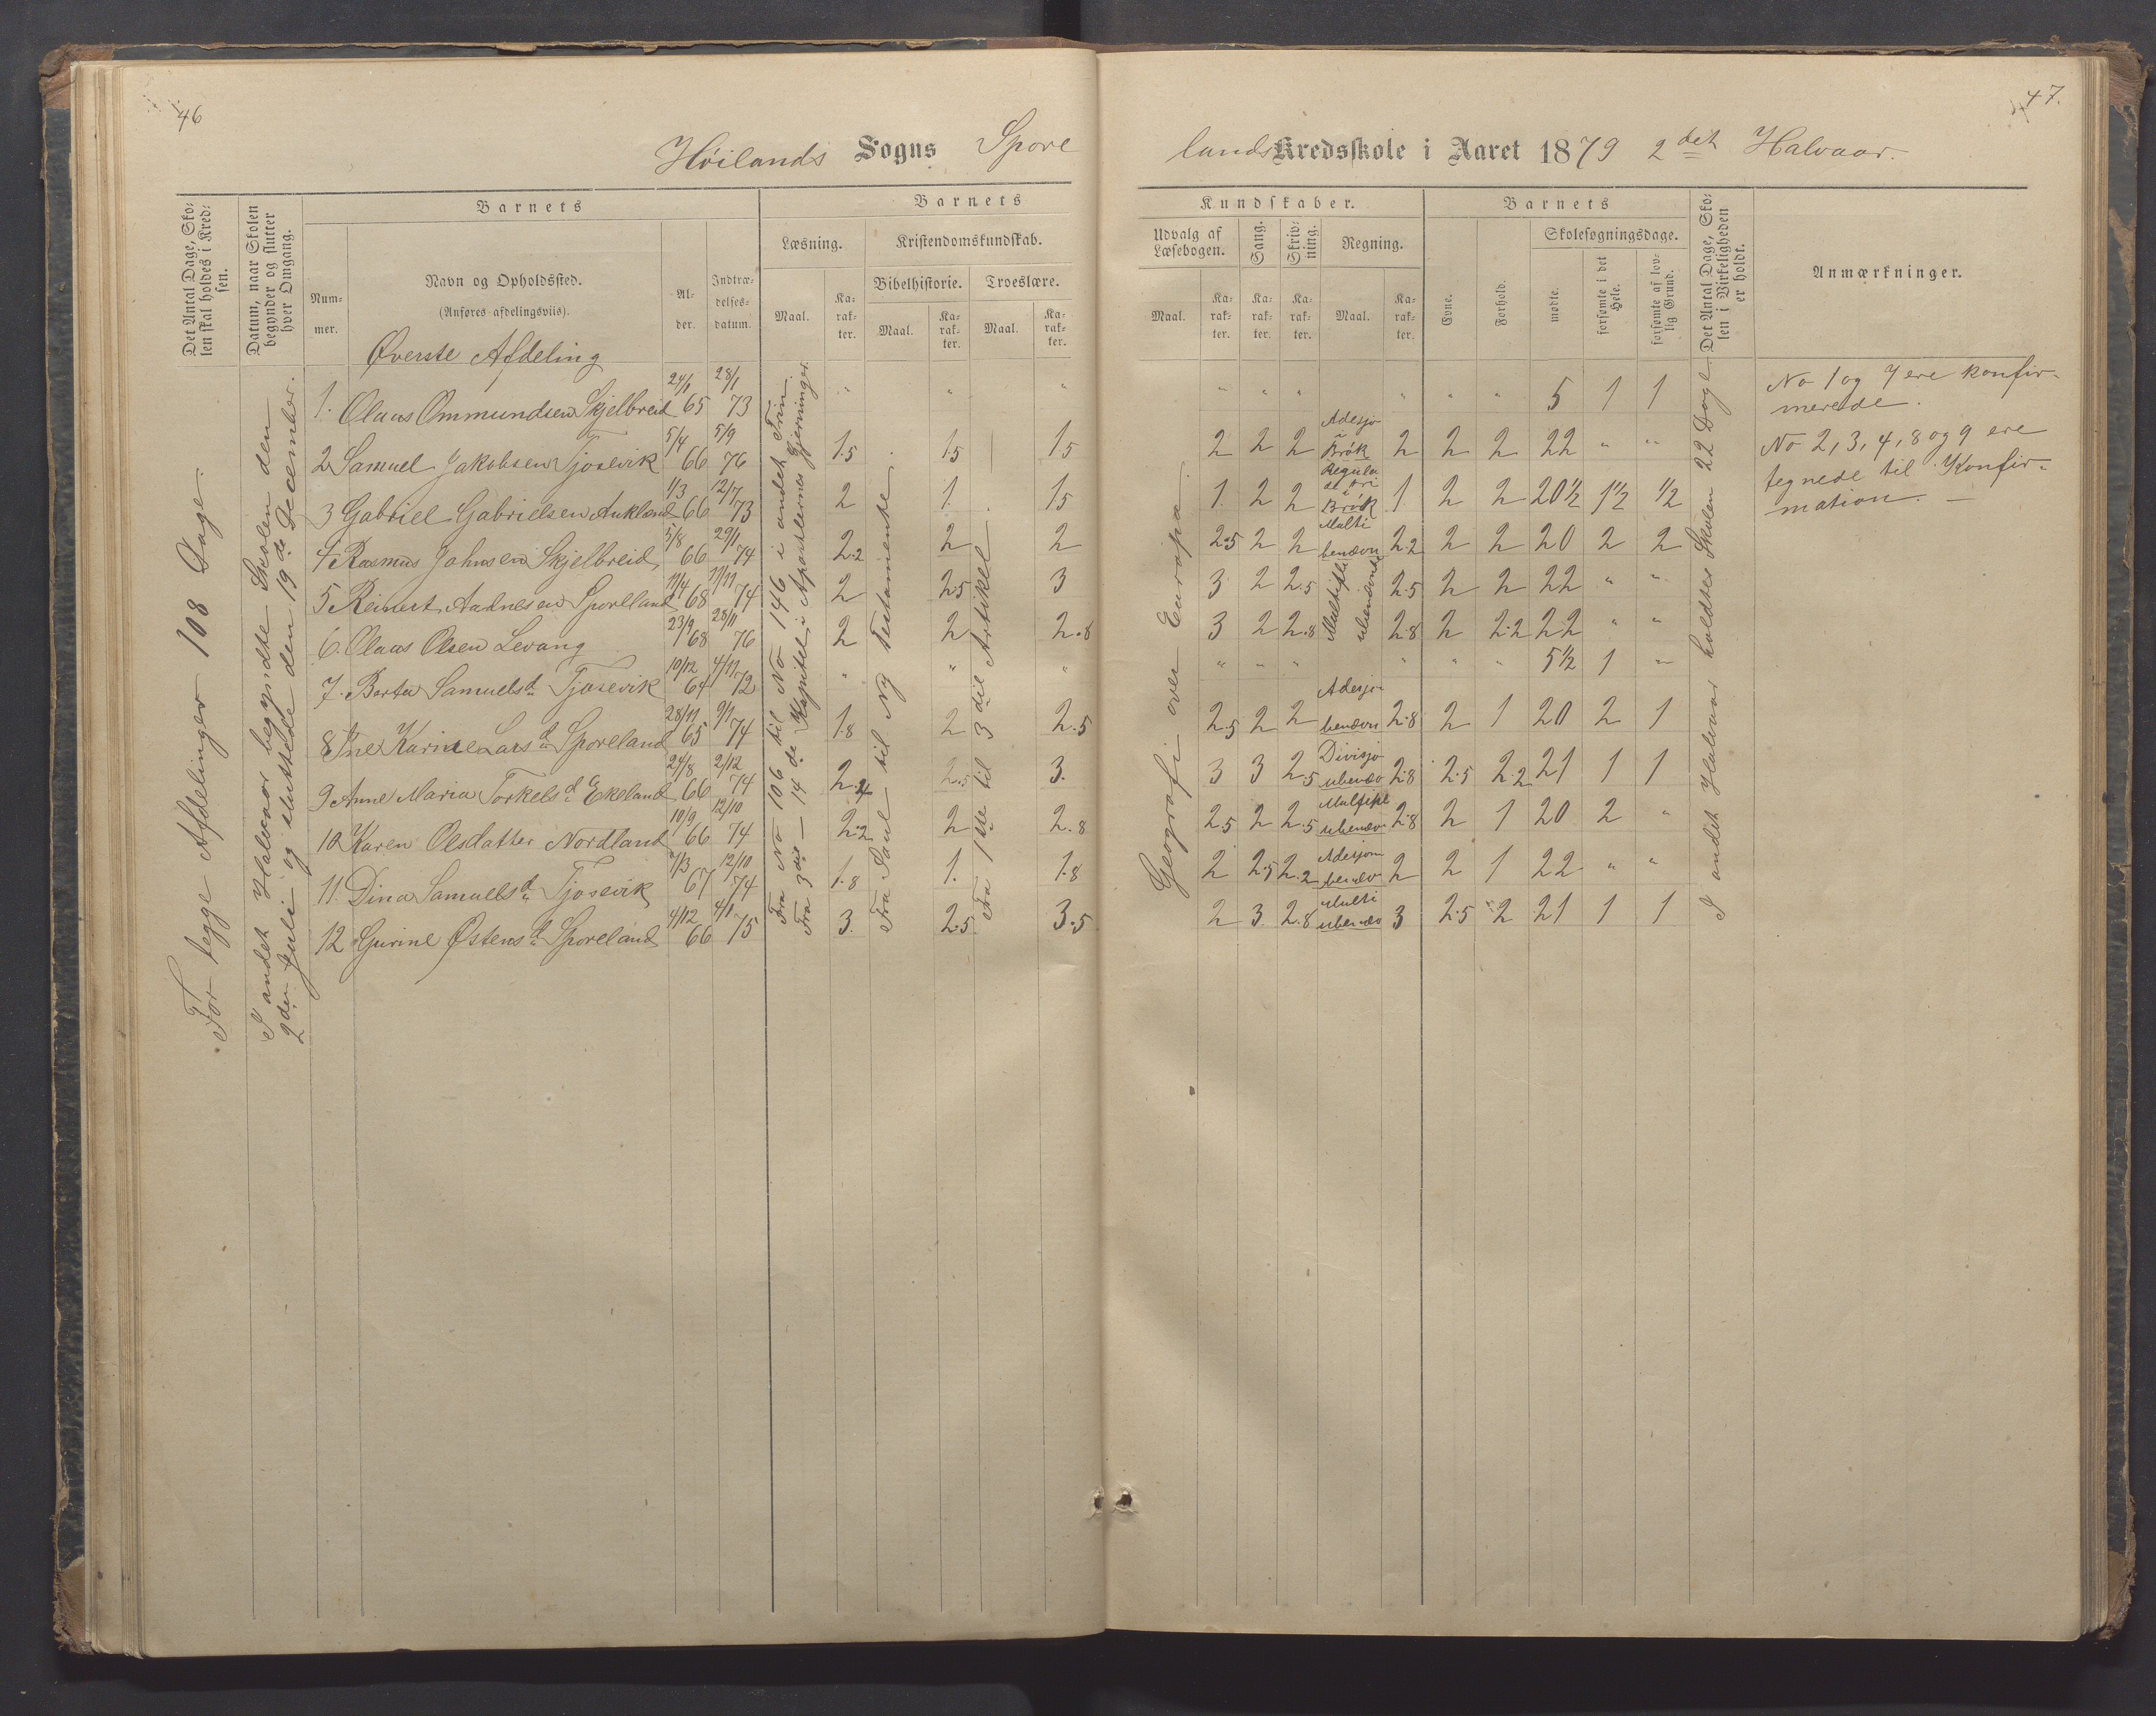 46
Høilands Sogns Spore
Det Antal Dage, Sko-
len skal holdes i Kred-
sen.
Datum, naar Skolen
begynder og slutter
hver Omgang.
Barnets
Barnets
Num-
mer.
Navn og Opholdssted.
(Anføres afdelingsviis).
Al-
der.
Indtræ-
delses-
datum.
Læsning.
Kristendomskundskab.
Maal.
Ka-
rak-
ter.
Bibelhistorie.
Troeslære.
Maal.
Ka-
rak-
ter.
Maal.
Ka-
rak-
ter.
Øverste Afdeling
For begge Afdelinger 108 Dage.
I andet Halvaar begyndte Skolen den
2den Juli og sluttede den 19de December.
Fra No 106 til No 146 i andet Trin.
Fra 3die – 14de Kapitel i Apostlernes Gjerninger.
Fra Saul til Ny Testamente.
Fra 1ste til 3die Artikel.
1. Olaus Ommundsen Skjelbreid 24/1 65 28/1 73 " " "
2 Samuel Jakobsen Tjosevik 5/4 66 5/9 76 1.5 1.5 1.5
3 Gabriel Gabrielsen Aukland 1/3 66 12/7 73 2 1. 1.5
4 Rasmus Johnsen Skjelbreid, 5/8 66 29/1 74 2.2 2 2
5 Reinert Aadnesen Sporeland 11/4 68 11/11 74 2 2.5 3
6. Olaus Olsen Levang 23/9 68 28/11 76 2 2 2.8
7. Berta Samuelsd. Tjosevik 10/12 64 4/11 72 " " "
8 Ine Karine Larsd. Sporeland 28/11 65 9/1 74 1.8 2 2.5
9 Anne Maria Torkelsd. Ekeland 24/8 66 2/12 74 2.4 2.5 3.
10 Karen Olsdatter Nordland 10/9 66 12/10 74 2.2 2 2.8
11. Dina Samuelsd. Tjosevik 7/3 67 12/10 74 1.8 1. 1.8
12 Gurine Østensd. Sporeland 4/12 66 4/1 75 3. 2.5 3.5
47.
lands Kredsskole i Aaret 1879 2det Halvaar.
Kundskaber.
Barnets
Udvalg af
Læsebogen.
Sang.
Skriv-
ning.
Regning.
Maal.
Ka-
rak-
ter.
Ka-
rak-
ter.
Ka-
rak-
ter.
Maal.
Ka-
rak-
ter.
Evne.
Forhold.
Skolesøgningsdage.
mødte.
forsømte i det
Hele.
forsømte af lov-
lig Grund.
Det Antal Dage, Sko-
len i Virkeligheden
er holdt.
Anmærkninger.
Geografi over Europa.
I andet Halvaar holdtes Skolen 22 Dage
" " " " " " 5 1 1
2 2 2 Adesjo i Brøk 2 2 2 22 " "
1. 2 2 Regula de tri i Brøk 1. 2 2 20½ 1½ ½
2.5 2 2 Multi benævn 2.2 2 2 20 2 2
3 2 2.5 Multipli 2.5 2 2 22 " "
3 2 2.8 ubenævnte 2.8 2 2.2 22 " "
" " " " " " 5½ 1 "
2.5 2 2 Adesjo benævn 2.8 2 1 20 2 1
3 3 2.5 Divisjo ubenæv 2.8 2.5 2.2 21 1 1
2.5 2 2.5 Multipl ubenæv 2.8 2 1 20 2 "
2 2.5 2.2 Adesjon benæv 2 2 1 22 " "
2 3. 2.8 Multi ubenæv 3 2.5 2 21 1 1
No 1 og 7 ere konfir-
merede.
No 2, 3, 4, 8 og 9 ere
tegnede til Konfir-
mation. –